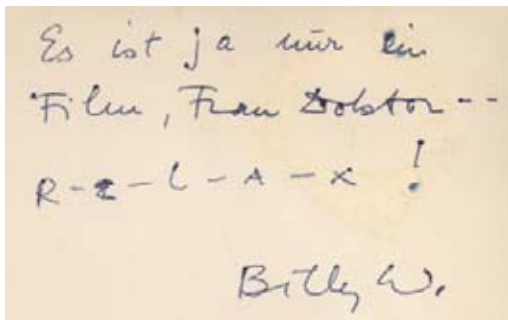 Es ist ja nur ein
Film, Frau Doktor --
R-e-l-a-x !
Billy W.